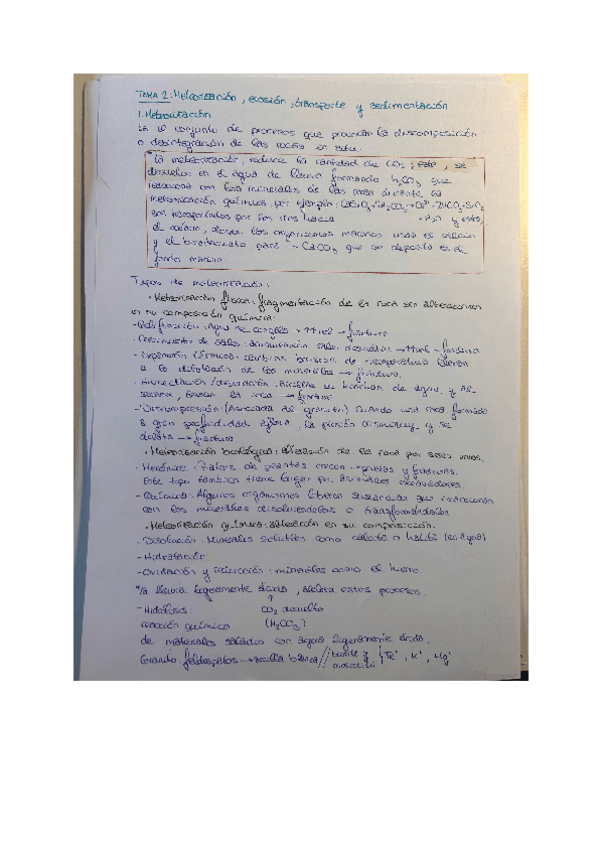 TEMA 2: Meteorización, erosión, transporte y sedimentación
1. Meteorización
Es el conjunto de procesos que provocan la descomposición
o desintegración de las rocas in situ.
*La meteorización, reduce la cantidad de CO2; este, se
disuelve en el agua de lluvia formando H2CO3 que
reacciona con los minerales de las rocas durante la
meteorización química, por ejemplo: CaSiO3 + 2H2CO3 → Ca2+ + 2HCO3 + SiO2
son transportados por los ríos hacia + H2O y estos,
el océano, donde los organismos marinos usan el calcio
y el bicarbonato para → CaCO3 que se deposita en el
fondo marino
Tipos de meteorización:
• Meteorización física: fragmentación de la roca sin alteraciones
en su composición química:
- Gelifracción: Agua se congela → ↑↑vol → fractura
- Crecimiento de sales: → ↑↑vol → fractura
- Expansión térmica: cambios bruscos de temperatura llevan
a la dilatación de los minerales → fractura.
- Humectación/desecación: Arcillas se hinchan de agua, y al
secarse, la roca → fractura
- Descompresión: (Asociada al granito) Cuando una roca formada
a gran profundidad aflora, la presión disminuye, y se
dilata → fractura
• Meteorización biológica: alteración de la roca por seres vivos.
- Mecánica: Raíces de plantas crecen → grietas y fracturas.
Este tipo también tiene lugar por animales excavadores.
- Química: Algunos organismos liberan sustancias que reaccionan
con los minerales disolviéndolos o transformándolos
• Meteorización química: alteración en su composición.
- Disolución: Minerales solubles como calcita o halita (en agua)
- Hidratación
- Oxidación y reducción: minerales como el hierro.
*la lluvia ligeramente ácida, acelera estos procesos.
- Hidrólisis CO2 disuelto
reacción química (H2CO3)
de materiales salados con agua ligeramente ácida.
Granito feldespatos → arcilla blanca // biotita y moscovita Fe, K+, Mg